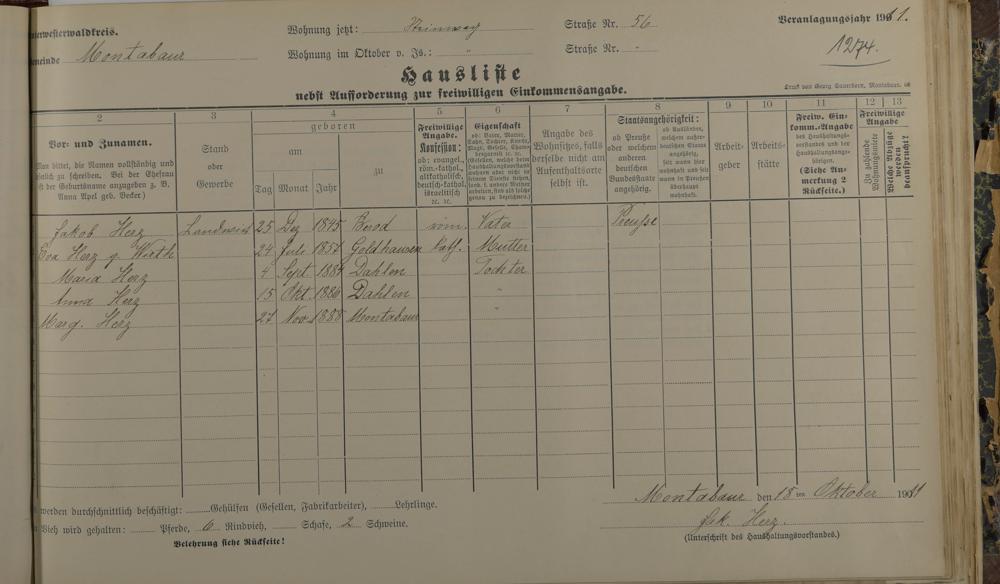 nterwesterwaldkreis.
Wohnung jetzt: Steinweg Straße Nr. 56
Veranlagungsjahr 1911.
emeinde Montabaur
Wohnung im Oktober v. Js.: " Straße Nr. "
1274.
Hausliste
nebst Aufforderung zur freiwilligen Einkommensangabe.
Druck von Georg Sauerborn, Montabaur.
2 3 4 5 6 7 8 9 10 11 12 13
Vor- und Zunamen.
Man bittet, die Namen vollständig und
deutlich zu schreiben. Bei der Ehefrau
ist der Geburtsname anzugeben z. B.
Anna Apel geb. Becker.)
Stand
oder
Gewerbe
geboren
am
zu
Tag Monat Jahr
Freiwillige
Angabe.
Konfession:
ob: evangel.,
röm.-kathol.,
altkatholisch,
deutsch-kathol.
israelitisch
ꝛc. ꝛc.
Eigenschaft
ob: Vater, Mutter,
Sohn, Tochter, Knecht,
Magd, Geselle,
Angabe des
Wohnsitzes, falls
derselbe nicht am
Aufenthaltsorte
selbst ist.
Staatsangehörigkeit:
ob Preuße
oder welchem
anderen
deutschen
Bundesstaate
angehörig.
ob Ausländer,
welchem außer-
deutschen Staate
angehörig,
seit wann hier
wohnhaft und seit
wann in Preußen
überhaupt
wohnhaft.
Arbeit-
geber
Arbeits-
stätte
Freiw. Ein-
komm.-Angabe
des Haushaltungs-
vorstandes und der
Haushaltungsange-
hörigen.
(Siehe An-
merkung 2
Rückseite.)
Freiwillige
Angabe
Zu zahlende
Wohnungsmiete
Welche Abzüge
werden
beansprucht?
Jakob Herz Landwirt 25 Dez 1845 Berod röm. Vater Preuße
Eva Herz g. Wirth 24 Juli 1851 Goldhausen kath. Mutter
Maria Herz 4 Sept. 1884 Dahlen Tochter
Anna Herz 15 Okt. 1886 Dahlen "
Marg. Herz 27 Nov. 1888 Montabaur
werden durchschnittlich beschäftigt: Gehülfen (Gesellen, Fabrikarbeiter), Lehrlinge.
Vieh wird gehalten: Pferde, 6 Rindvieh, Schafe, 2 Schweine.
Belehrung siehe Rückseite!
Montabaur den 18ten Oktober 1911
Jak. Herz.
(Unterschrift des Haushaltungsvorstandes.)